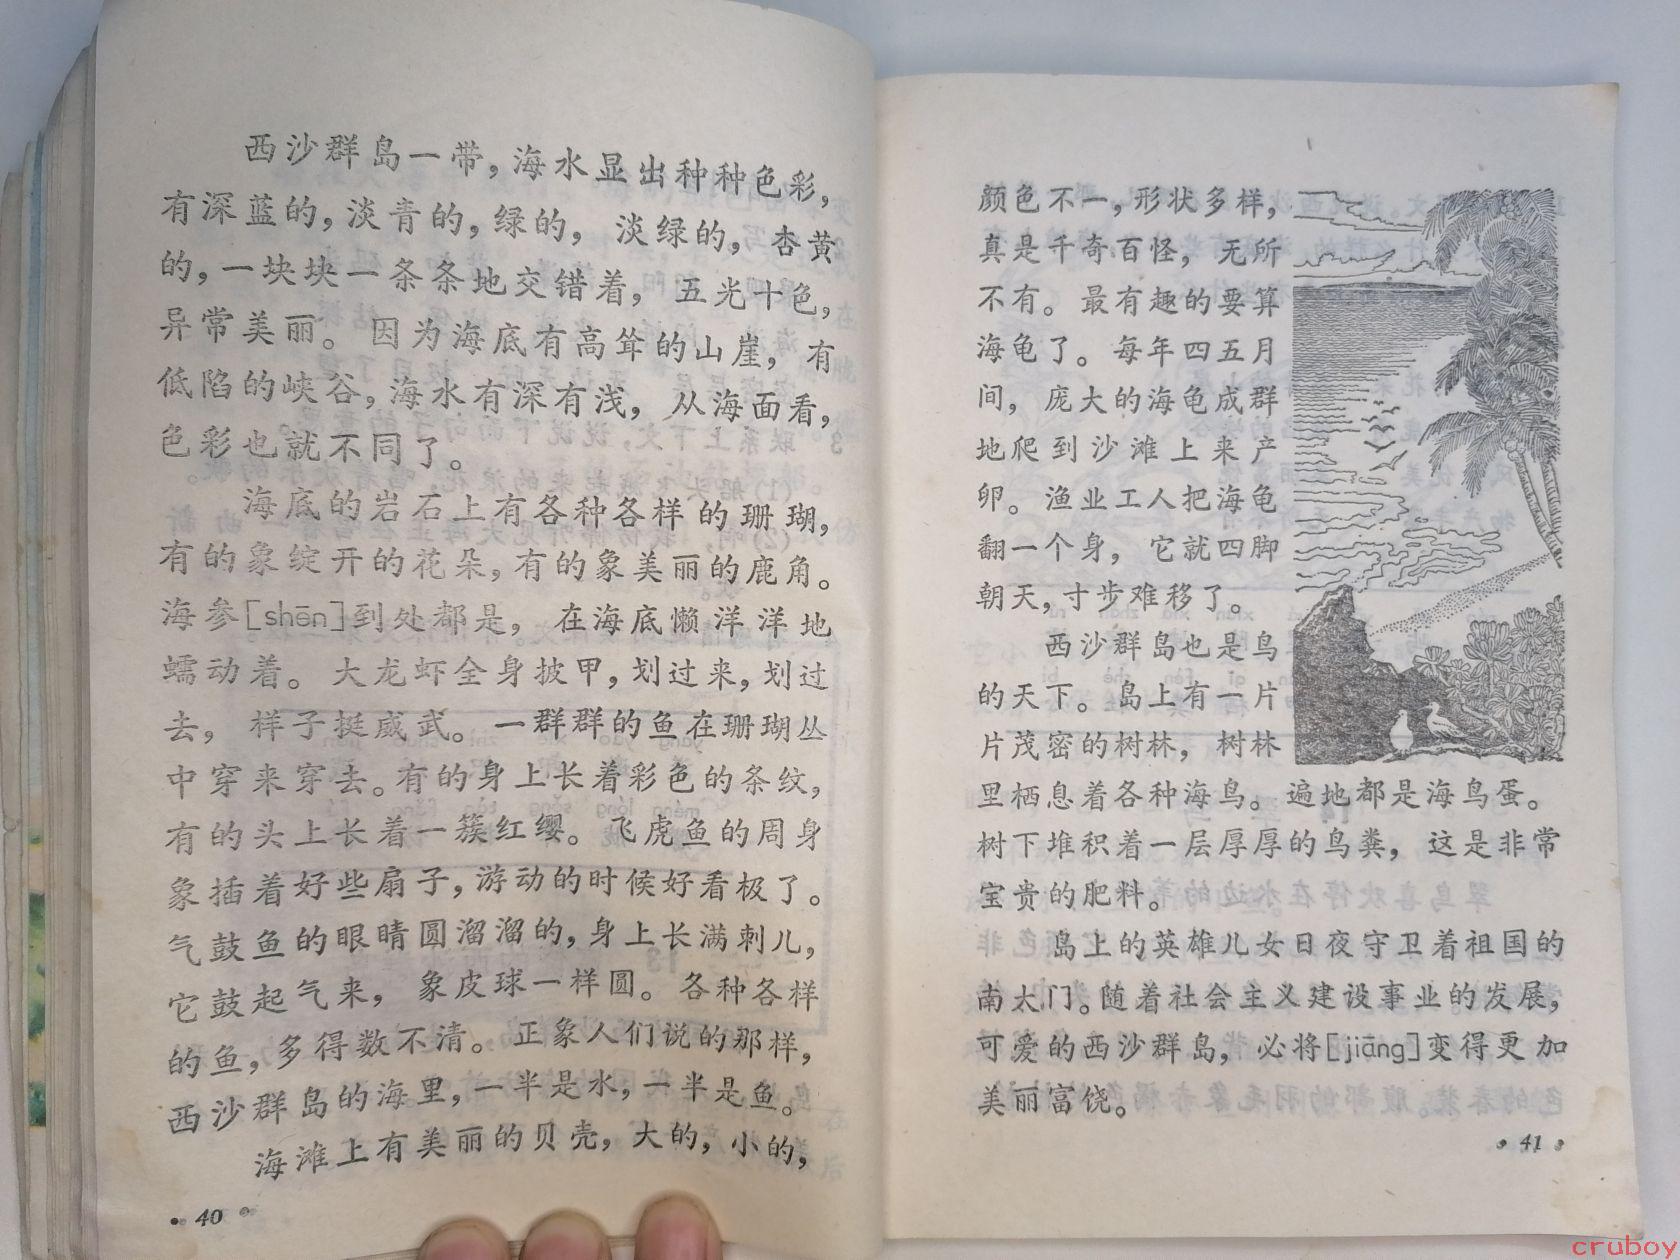 西沙群岛一带，海水显出种种色彩，
有深蓝的，淡青的，绿的，淡绿的，杏黄
的，一块块一条条地交错着，五光十色，
异常美丽。因为海底有高耸的山崖，有
低陷的峡谷，海水有深有浅，从海面看，
色彩也就不同了。
海底的岩石上有各种各样的珊瑚，
有的象绽开的花朵，有的象美丽的鹿角。
海参[shēn]到处都是，在海底懒洋洋地
蠕动着。大龙虾全身披甲，划过来，划过
去，样子挺威武。一群群的鱼在珊瑚丛
中穿来穿去。有的身上长着彩色的条纹，
有的头上长着一簇红缨。飞虎鱼的周身
象插着好些扇子，游动的时候好看极了。
气鼓鱼的眼睛圆溜溜的，身上长满刺儿，
它鼓起气来，象皮球一样圆。各种各样
的鱼，多得数不清。正象人们说的那样，
西沙群岛的海里，一半是水，一半是鱼。
海滩上有美丽的贝壳，大的，小的，
• 40 •
颜色不一，形状多样，
真是千奇百怪，无所
不有。最有趣的要算
海龟了。每年四五月
间，庞大的海龟成群
地爬到沙滩上来产
卵。渔业工人把海龟
翻一个身，它就四脚
朝天，寸步难移了。
西沙群岛也是鸟
的天下。岛上有一片
片茂密的树林，树林
里栖息着各种海鸟。遍地都是海鸟蛋。
树下堆积着一层厚厚的鸟粪，这是非常
宝贵的肥料。
岛上的英雄儿女日夜守卫着祖国的
南大门。随着社会主义建设事业的发展，
可爱的西沙群岛，必将[jiāng]变得更加
美丽富饶。
• 41 •
cruboy